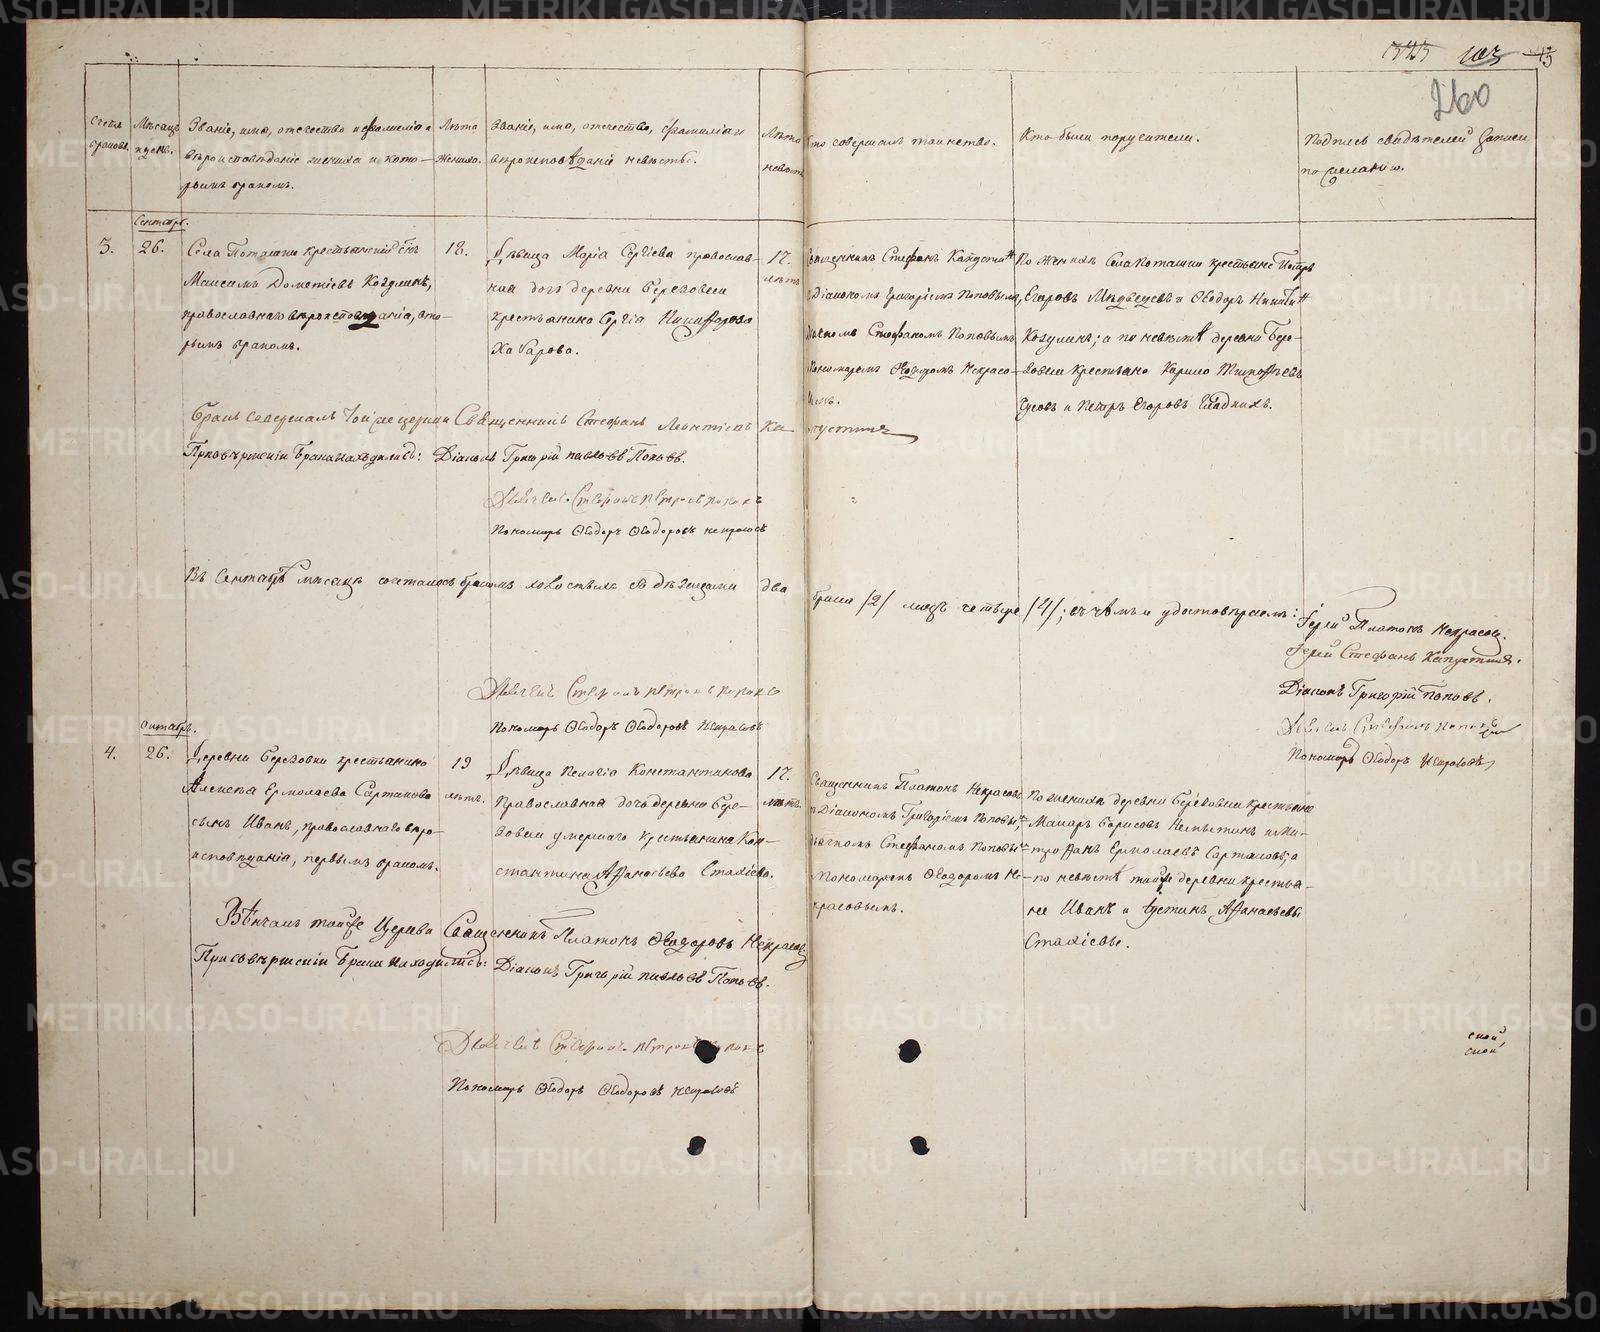 325 103 45
260
Счетъ браковъ.
Мѣсяцъ и день.
Званіе, имя, отчество и фамилія и
вѣроисповѣданіе жениха и кото-
рымъ бракомъ.
Лѣта
жениха.
Званіе, имя, отчество, фамилія и
вѣроисповѣданіе невѣсты.
Лѣта
невѣсты
Кто совершалъ таинство.
Кто были поручители.
Подпись свидѣтелей записи
по желанію.
Сентябрь.
3.
26.
Села Поташки крестьянскій сынъ
Максимъ Дометіевъ Козулинъ,
православнаго вѣроисповѣданія, вто-
рымъ бракомъ.
18.
Дѣвица Марія Сергіева православ-
ная дочь деревни Березовки
крестьянина Сергія Никифорова
Хабарова.
17.
лѣтъ
Священникъ Стефанъ Капустин
Діакономъ Григоріемъ Поповымъ,
Дьячкомъ Стефаномъ Поповымъ
Пономаремъ Ѳеодоромъ Некрасо-
вымъ.
По женихѣ села Поташки крестьяне Петръ
Егоровъ Медвецевъ и Ѳеодоръ Никитин
Козулинъ; а по невѣстѣ деревни Бере-
зовки крестьяне Карило Тимофѣевъ
Гусевъ и Петръ Егоровъ Гладкихъ.
Бракъ совершалъ той же церкви Священникъ Стефанъ Леонтіевъ Капустинъ
При совершеніи брака находились: Діаконъ Григорій Павловъ Поповъ.
Дьячекъ Стефанъ Петровъ Поповъ
Пономарь Ѳеодоръ Ѳеодоровъ Некрасовъ
Въ Сентябрѣ мѣсяцѣ сочеталось бракомъ холостыхъ съ дѣвицами два
брака /2/ лицъ четыре /4/; въ чемъ и удостовѣряемъ:
Іерей Платонъ Некрасовъ.
Іерей Стефанъ Капустинъ.
Діаконъ Григорій Поповъ.
Дьячекъ Стефанъ Поповъ
Пономарь Ѳеодоръ Некрасовъ
Дьячекъ Стефанъ Петровъ Поповъ
Пономарь Ѳеодоръ Ѳеодоровъ Некрасовъ
Октябрь.
4.
26.
Деревни Березовки крестьянина
Алексѣя Ермолаева Сартакова
сынъ Иванъ, православнаго вѣро-
исповѣданія, первымъ бракомъ.
19
лѣтъ.
Дѣвица Пелагія Константинова
православная дочь деревни Бере-
зовки умершаго крестьянина Кон-
стантина Афанасьева Стахіева.
17.
лѣтъ
Священникъ Платонъ Некрасовъ
съ Діакономъ Григоріемъ Поповы,
дьячкомъ Стефаномъ Поповы
Пономаремъ Ѳеодоромъ Не-
красовымъ.
По женихѣ деревни Березовки крестьяне
Макаръ Борисовъ Непытинъ и Ми-
трофанъ Ермолаевъ Сартаковъ; а
по невѣстѣ той же деревни крестья-
не Иванъ и Устинъ Афанасьевы
Стахіевы.
Вѣнчалъ той же Церкви Священникъ Платонъ Ѳеодоровъ Некрасовъ
При совершеніи Брака находились: Діаконъ Григорій Павловъ Поповъ.
Дьячекъ Стефанъ Петровъ Поповъ
Пономарь Ѳеодоръ Ѳеодоровъ Некрасовъ
METRIKI.GASO-URAL.RU